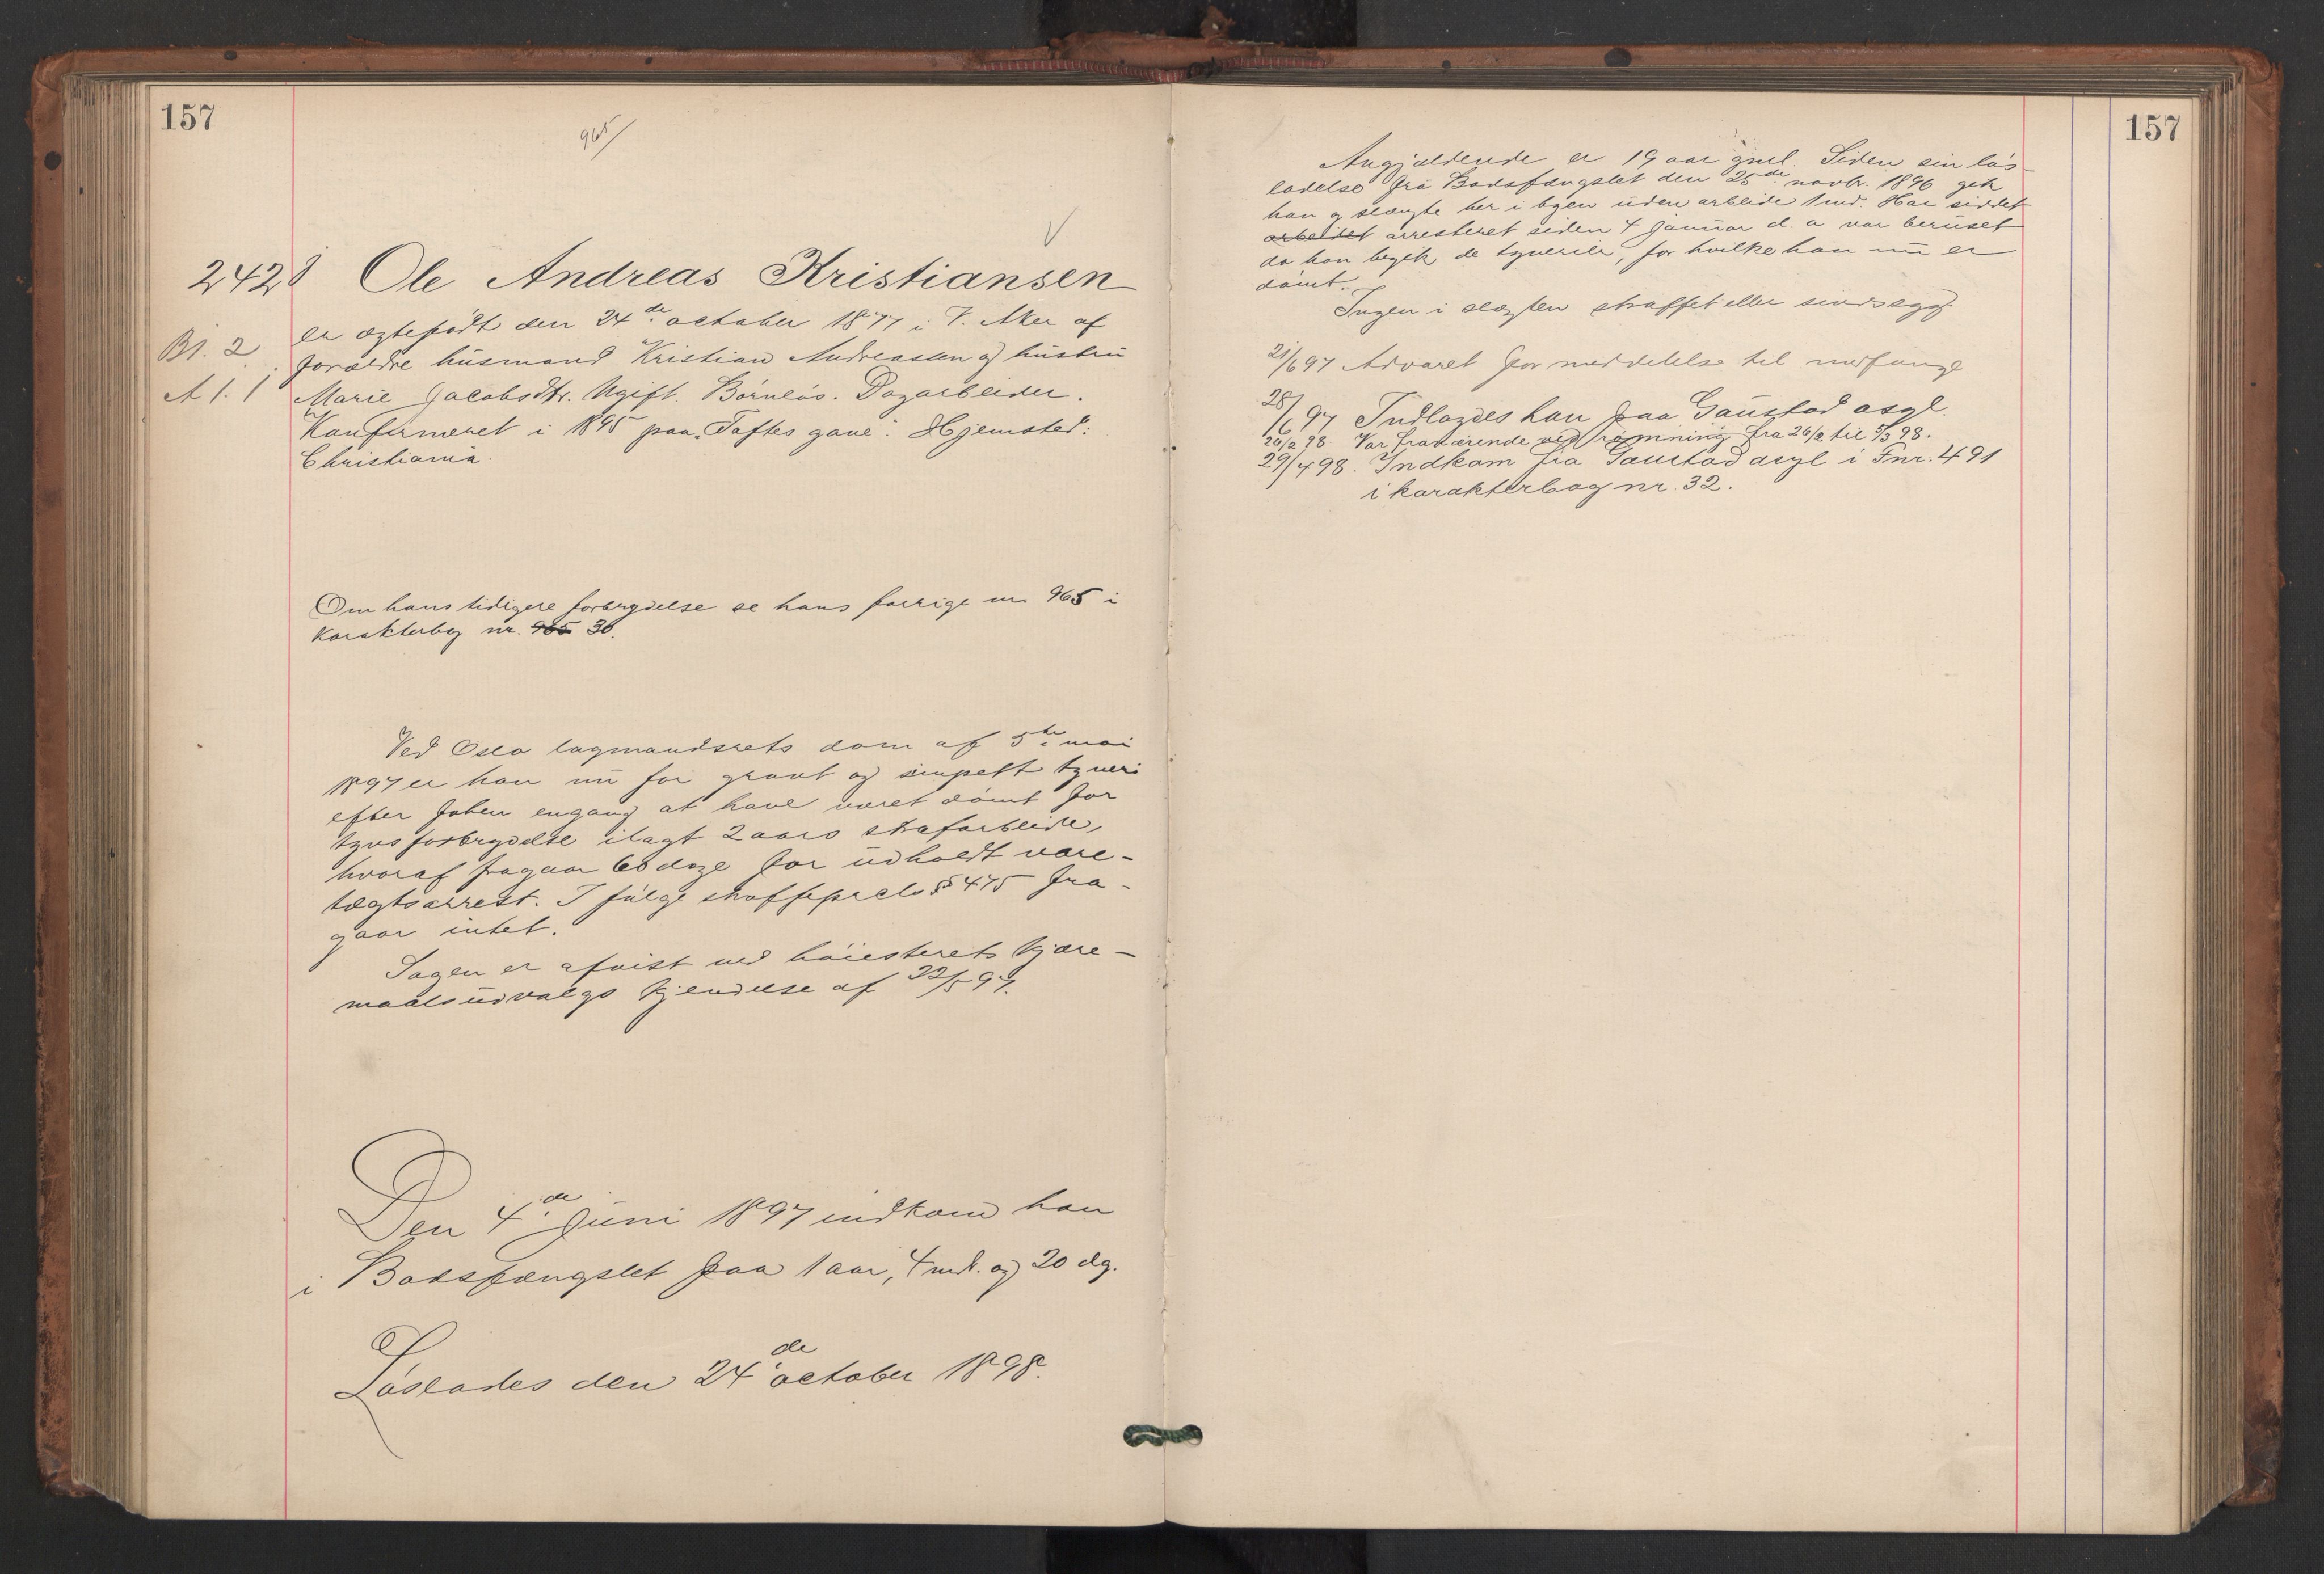 157
965/
V
2428 Ole Andreas Kristiansen
Bl. 2. er ægtefødt den 24de october 1877 i V. Aker af
forældre husmand Kristian Andreassen og hustru
A 1. 1 Marie Jacobsdtr. Ugift. Børnløs. Dagarbeider.
Konfirmeret i 1895 paa "Toftes gave". Hjemsted:
Christiania.
Om hans tidigere forbrydelse se hans forrige nr 965 i
karakterbog nr. 965 30.
Ved Oslo lagmandsrets dom af 5te mai
1897 er han nu for grovt og simpelt tyveri
efter foben engang at have været dømt for
tyvsforbrydelse ilagt 2 aars strafarbeide,
hvoraf fragaar 60 dage for udholdt vare-
tægtsarrest. I følge straffeprcls § 475 fra-
gaar intet.
Sagen er afvist ved høiesterets kjære-
maalsudvalgs kjendelse af 22/5 97.
Den 4de Juni 1897 indkom han
i Bodsfængslet paa 1 aar, 4 md. og 20 dg.
Løslades den 24de october 1898.
157
Angjældende er 19 aar gml. Siden sin løs-
ladelse fra Bodsfængslet den 25de novbr. 1896 gik
han og slængte her i byen uden arbeide 1 md. Har siddet
arbeidet arresteret siden 4 januar d. a var beruset
da han begik de tyverier, for hvilke han nu er
dømt.
Ingen i slægten straffet eller sindssyg.
21/6 97 Advaret for meddelelse til medfange
28/6 97 Indlagdes han paa Gaustad asyl.
26/2 98. Var fraværende ved rømning fra 26/2 til 5/3 98.
29/4 98. Indkom fra Gaustad asyl i Fnr. 491
i karakterbog nr. 32.